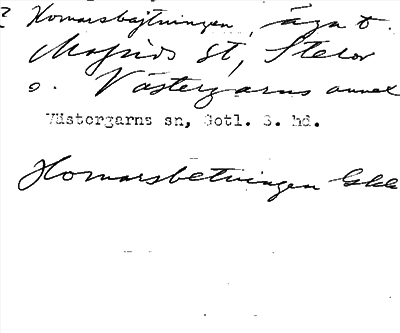 ? Homarsbajtningen, äga t.
St, Stelor
o. Västergarns annex
Västergarns sn, Gotl. S. hd.
Homarsbetningen